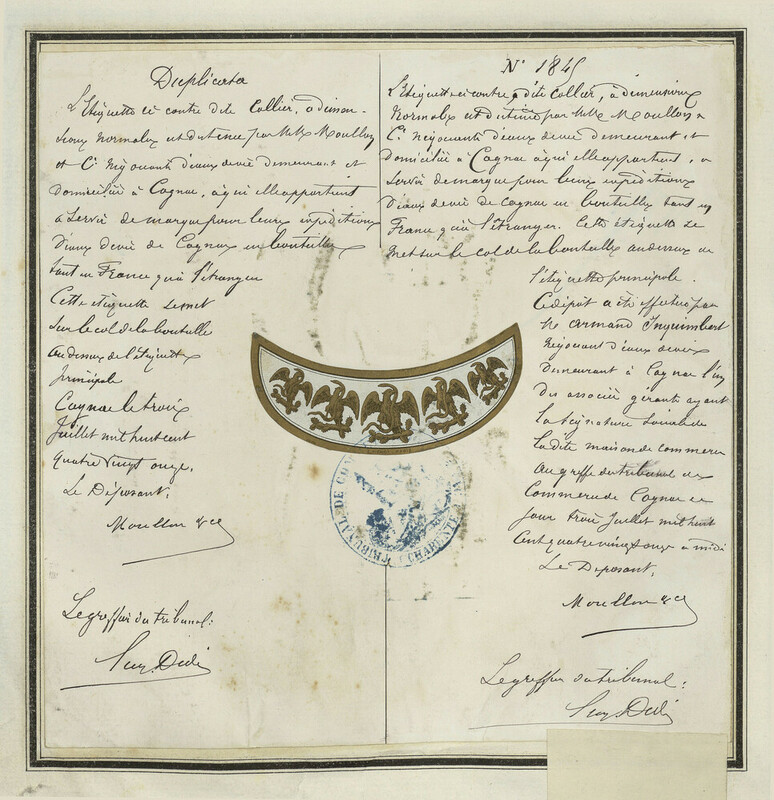 Duplicata
L'Etiquette ci contre dite Collier, a dimen-
sions normales et destinée par MM. Moullon
et Cie négociants d'eaux de vie demeurant et
domiciliés à Cognac, à qui elle appartient
a servir de marque pour leurs expéditions
d'eaux de vie de Cognac en bouteilles
tant en France qu'à l'étranger
Cette étiquette se met
sur le col de la bouteille
au dessus de l'étiquette
principale
Cognac le trois
Juillet mil huit cent
quatre vingt onze.
Le Déposant:
Moullon & Cie
Le greffier du tribunal:
N° 1845
L'Etiquette ci contre, dite Collier, à dimensions
normales et destinée par MM. Moullon &
Cie négociants d'eaux de vie demeurant et
domiciliés à Cognac à qui elle appartient, a
servir de marque pour leurs expéditions
d'eaux de vie de Cognac en bouteilles tant en
France qu'à l'étranger. Cette étiquette se
met sur le col de la bouteille au dessus de
l'étiquette principale.
Ce dépôt a été effectué par
Mr Armand Inquimbert
négociant d'eaux de vie
demeurant à Cognac l'un
des associés gérants ayant
la signature sociale de
la dite maison de commerce
au greffe du tribunal de
Commerce de Cognac ce
jour trois Juillet mil huit
cent quatre vingt onze à midi
Le Déposant,
Moullon & Cie
Le greffier du tribunal:
TRIBUNAL DE COM
CHARENTE